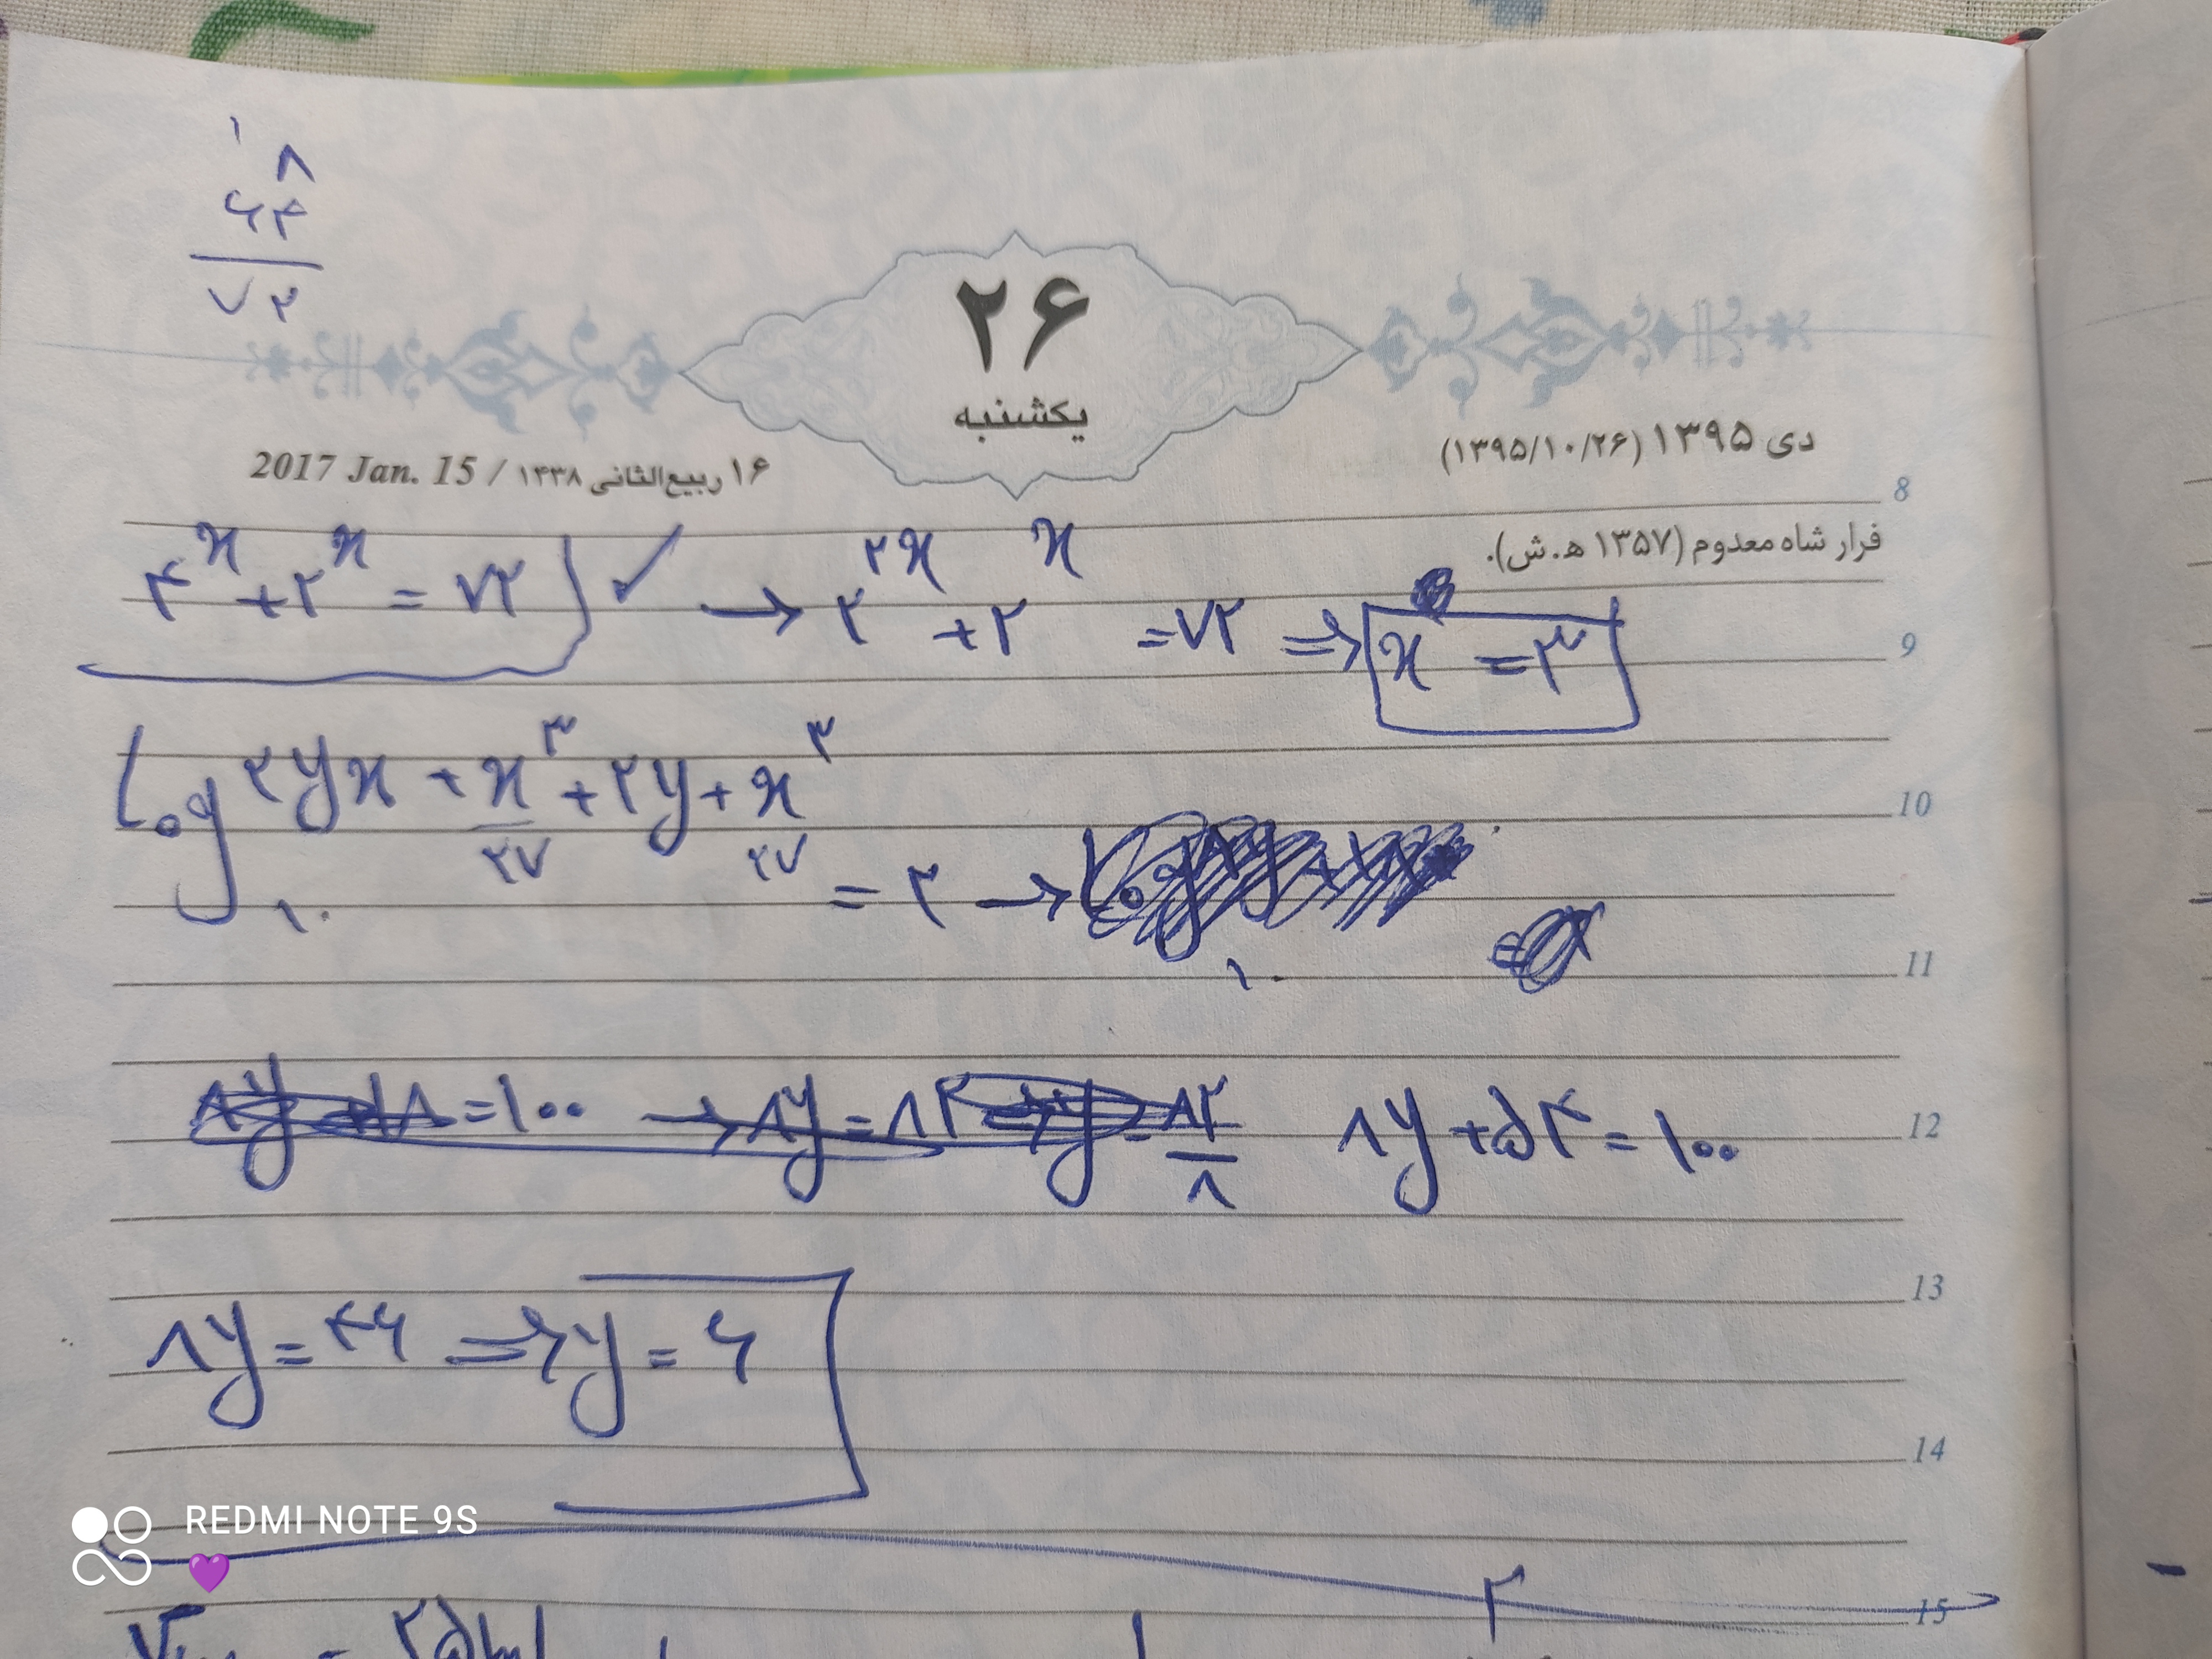 ۱
۸
۶۴
۷۲
۲۶
یکشنبه
دی ۱۳۹۵ (۱۳۹۵/۱۰/۲۶)
۱۶ ربیع‌الثانی ۱۴۳۸ / 2017 Jan. 15
8
فرار شاه معدوم (۱۳۵۷ ه‍.ش).
۴^x + ۲^x = ۷۲ ✓ → ۲^۲x + ۲^x = ۷۲ ⇒ x = ۳
9
log ۲yx + x^۳/۲۷ + ۲y + x^۳/۲۷
10
۱۰ = ۲ →
۱۰
11
= ۱۰۰ → ۸y = ۸۲ y = ۸۲/۸ ۸y + ۵۴ = ۱۰۰
12
13
۸y = ۴۶ ⇒ y = ۶
14
REDMI NOTE 9S
💜
۲
15